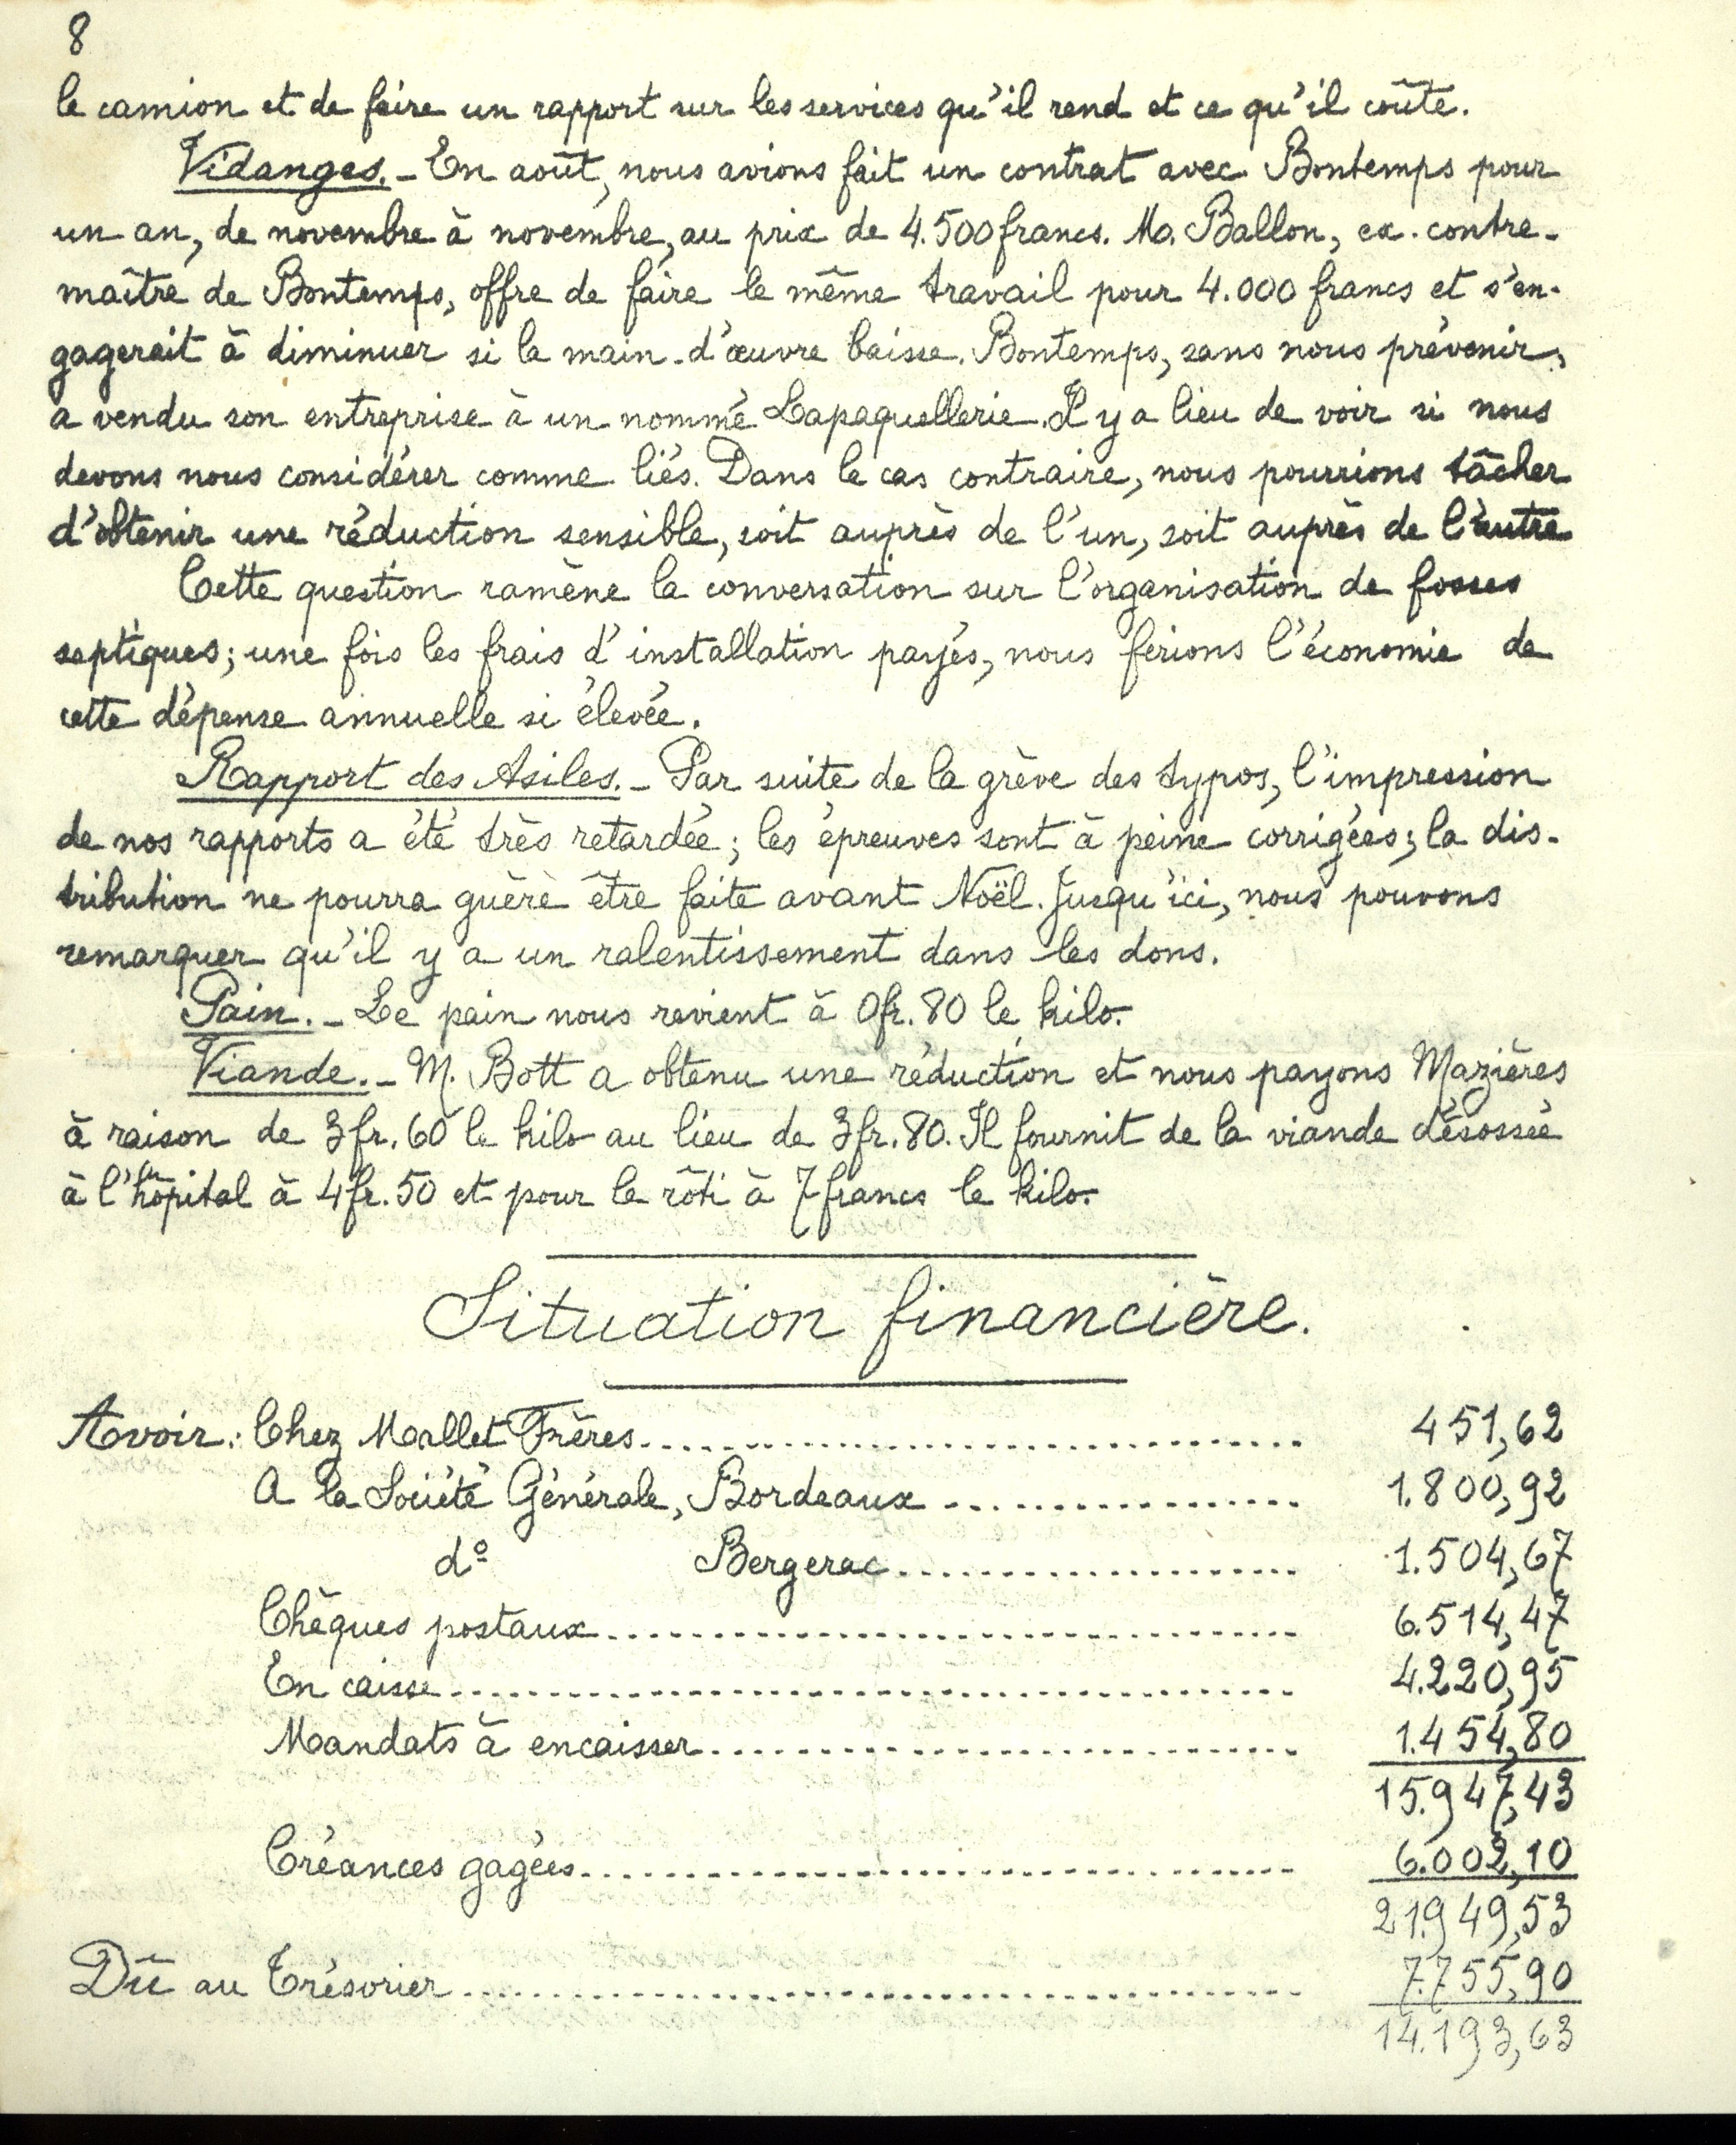 8
le camion et de faire un rapport sur les services qu'il rend et ce qu'il coûte.
Vidanges. - En août, nous avions fait un contrat avec Bontemps pour
un an, de novembre à novembre, au prix de 4.500 francs. M. Ballon, ex-contre-
maître de Bontemps, offre de faire le même travail pour 4.000 francs et s'en-
gagerait à diminuer si la main-d'œuvre baisse. Bontemps, sans nous prévenir,
a vendu son entreprise à un nommé Lapaquellerie. Il y a lieu de voir si nous
devons nous considérer comme liés. Dans le cas contraire, nous pourrions tâcher
d'obtenir une réduction sensible, soit auprès de l'un, soit auprès de l'autre
Cette question ramène la conversation sur l'organisation de fosses
septiques; une fois les frais d'installation payés, nous ferions l'économie de
cette dépense annuelle si élevée.
Rapport des Asiles. - Par suite de la grève des typos, l'impression
de nos rapports a été très retardée; les épreuves sont à peine corrigées; la dis-
tribution ne pourra guère être faite avant Noël. Jusqu'ici, nous pouvons
remarquer qu'il y a un ralentissement dans les dons.
Pain. - Le pain nous revient à 0fr.80 le kilo.
Viande. - M. Bott a obtenu une réduction et nous payons Mazières
à raison de 3fr.60 le kilo au lieu de 3fr.80. Il fournit de la viande désossée
à l'hôpital à 4fr.50 et pour le rôti à 7 francs le kilo.
Situation financière.
Avoir: Chez Mallet Frères.......... 451,62
A la Société Générale, Bordeaux .......... 1.800,92
dº Bergerac.......... 1.504,67
Chèques postaux.......... 6.514,47
En caisse.......... 4.220,95
Mandats à encaisser.......... 1.454,80
15.947,43
Créances gagées.......... 6.002,10
21.949,53
Dû au Trésorier.......... 7.755,90
14.193,63